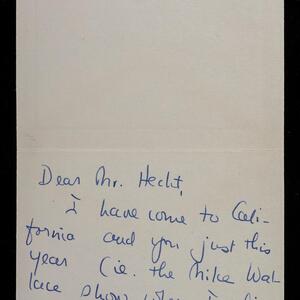 Dear Mr. Hecht,
I have come to Cali-
fornia and you just this
year (ie. the Mike Wal
lace show